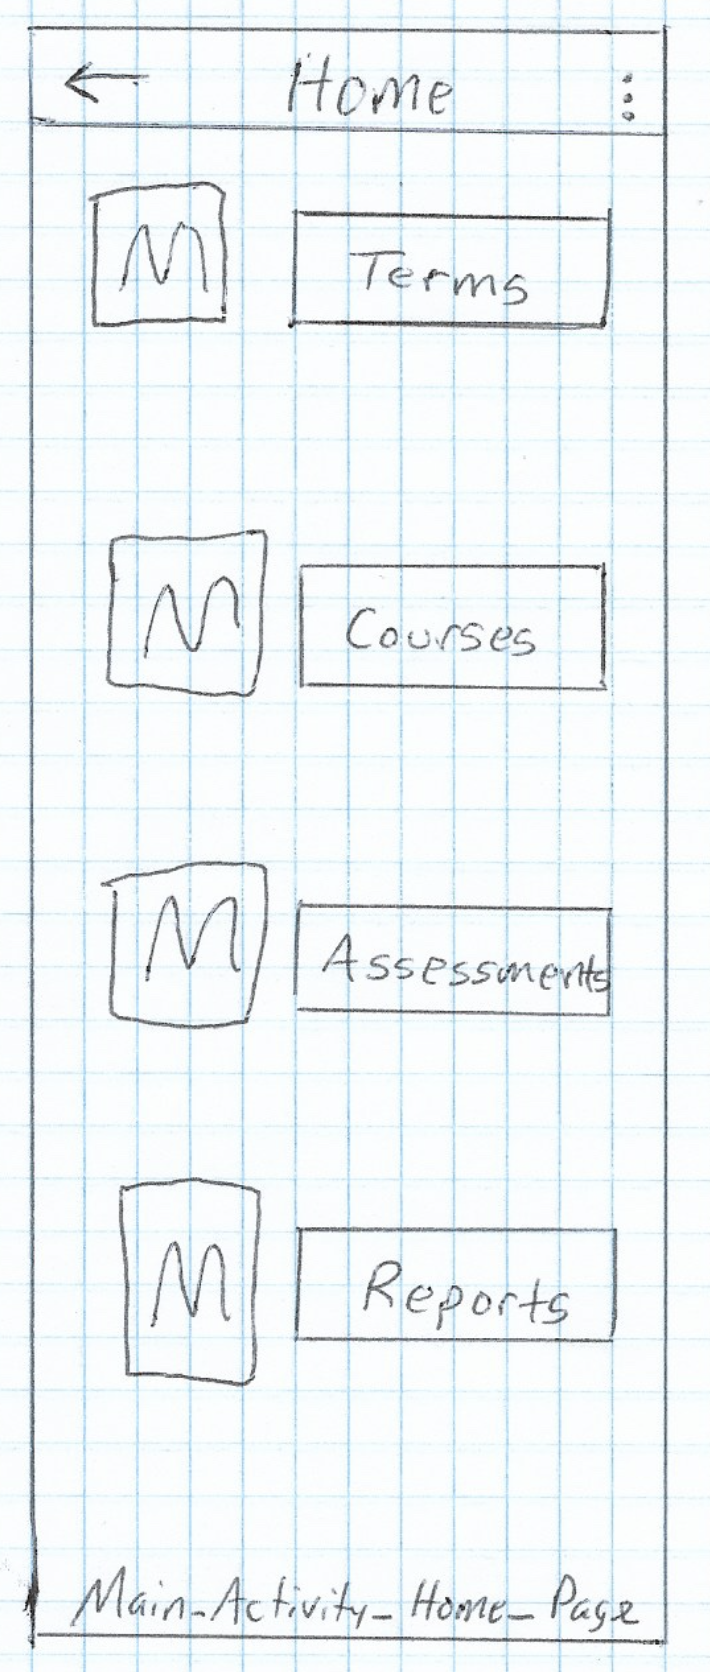 ← Home ⋮
M Terms
M Courses
M Assessments
M Reports
Main_Activity_Home_Page